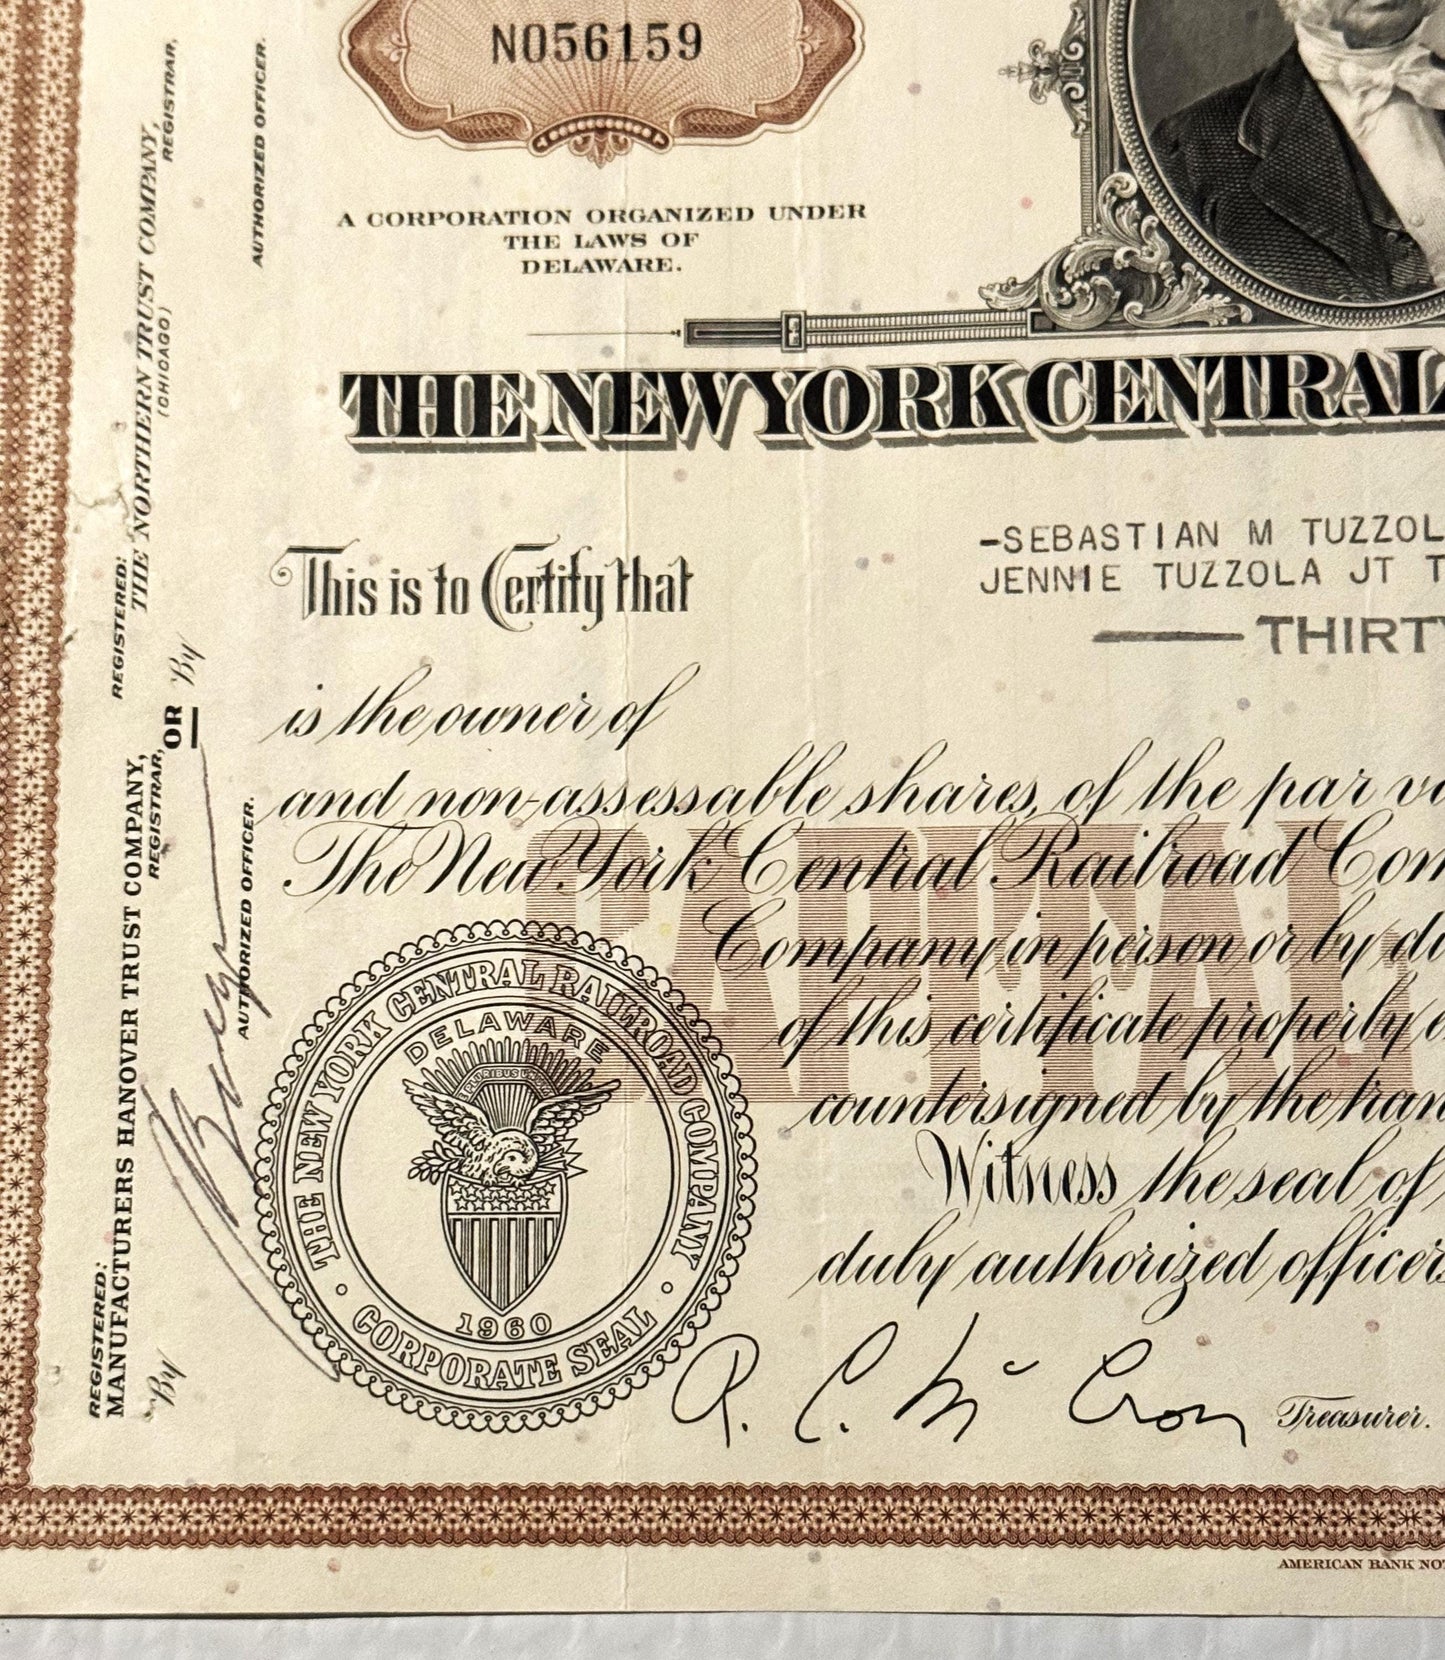 NO56159
A CORPORATION ORGANIZED UNDER
THE LAWS OF
DELAWARE.
THE NEW YORK CENTRAL
This is to Certify that
-SEBASTIAN M TUZZOL
JENNIE TUZZOLA JT T
THIRTY
is the owner of
and non-assessable shares, of the par va
The New York Central Railroad Com
Company, in person or by du
of this certificate properly e
countersigned by the tran
Witness the seal of
duly authorized officers
CAPITAL
THE NEW YORK CENTRAL RAILROAD COMPANY
DELAWARE
E PLURIBUS UNUM
1960
CORPORATE SEAL
R. C. Mc Cron
Treasurer.
AMERICAN BANK NOT
REGISTERED:
MANUFACTURERS HANOVER TRUST COMPANY,
REGISTRAR,
By
AUTHORIZED OFFICER.
OR
REGISTERED:
THE NORTHERN TRUST COMPANY,
(CHICAGO)
REGISTRAR,
By
AUTHORIZED OFFICER.